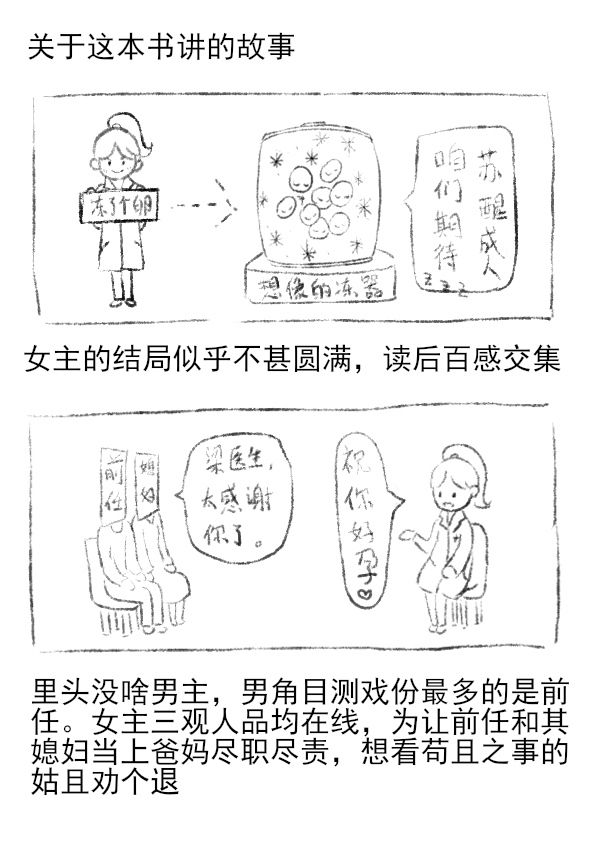 关于这本书讲的故事
冻了个卵
咱们期待
苏醒成人
zzz
想像的冻器
女主的结局似乎不甚圆满，读后百感交集
前任
媳妇
梁医生，
太感谢
你了。
祝你好孕♡
里头没啥男主，男角目测戏份最多的是前
任。女主三观人品均在线，为让前任和其
媳妇当上爸妈尽职尽责，想看苟且之事的
姑且劝个退